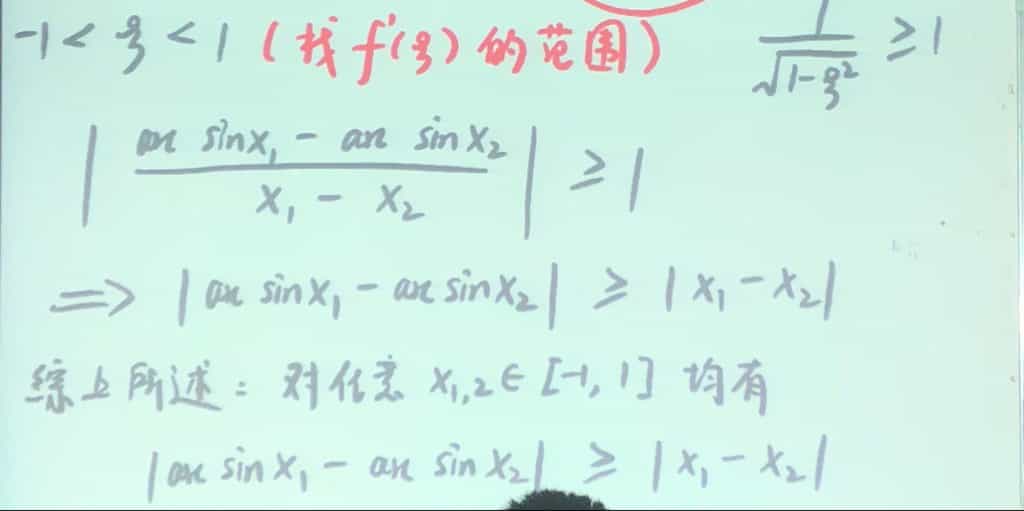 -1 < ξ < 1 (找 f'(ξ) 的范围) 1/√(1-ξ²) ≥ 1
| (arc sin x₁ - arc sin x₂)/(x₁ - x₂) | ≥ 1
⇒ | arc sin x₁ - arc sin x₂ | ≥ | x₁ - x₂ |
综上所述: 对任意 x₁,₂ ∈ [-1, 1] 均有
| arc sin x₁ - arc sin x₂ | ≥ | x₁ - x₂ |